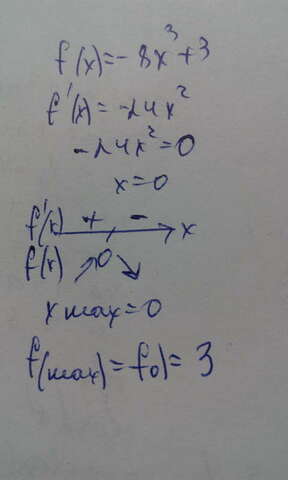 f(x)=-8x³+3
f'(x)=-24x²
-24x²=0
x=0
f'(x) + - x
f(x) ↗ 0 ↘
x max=0
f(max)=f0)=3